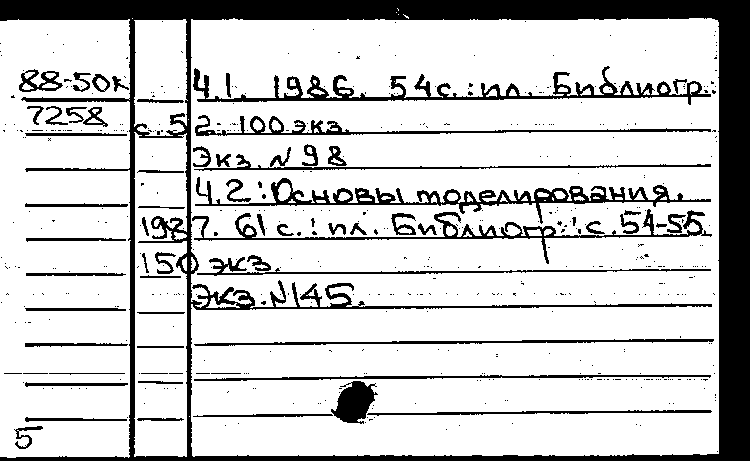 88-50к Ч.1. 1986. 54с.:ил. Библиогр.:
7258 с.52. 100 экз.
Экз. N 98
Ч.2: Основы моделирования.
1987. 61 с.: ил. Библиогр.: с.54-55.
150 экз.
Экз. N145.
5